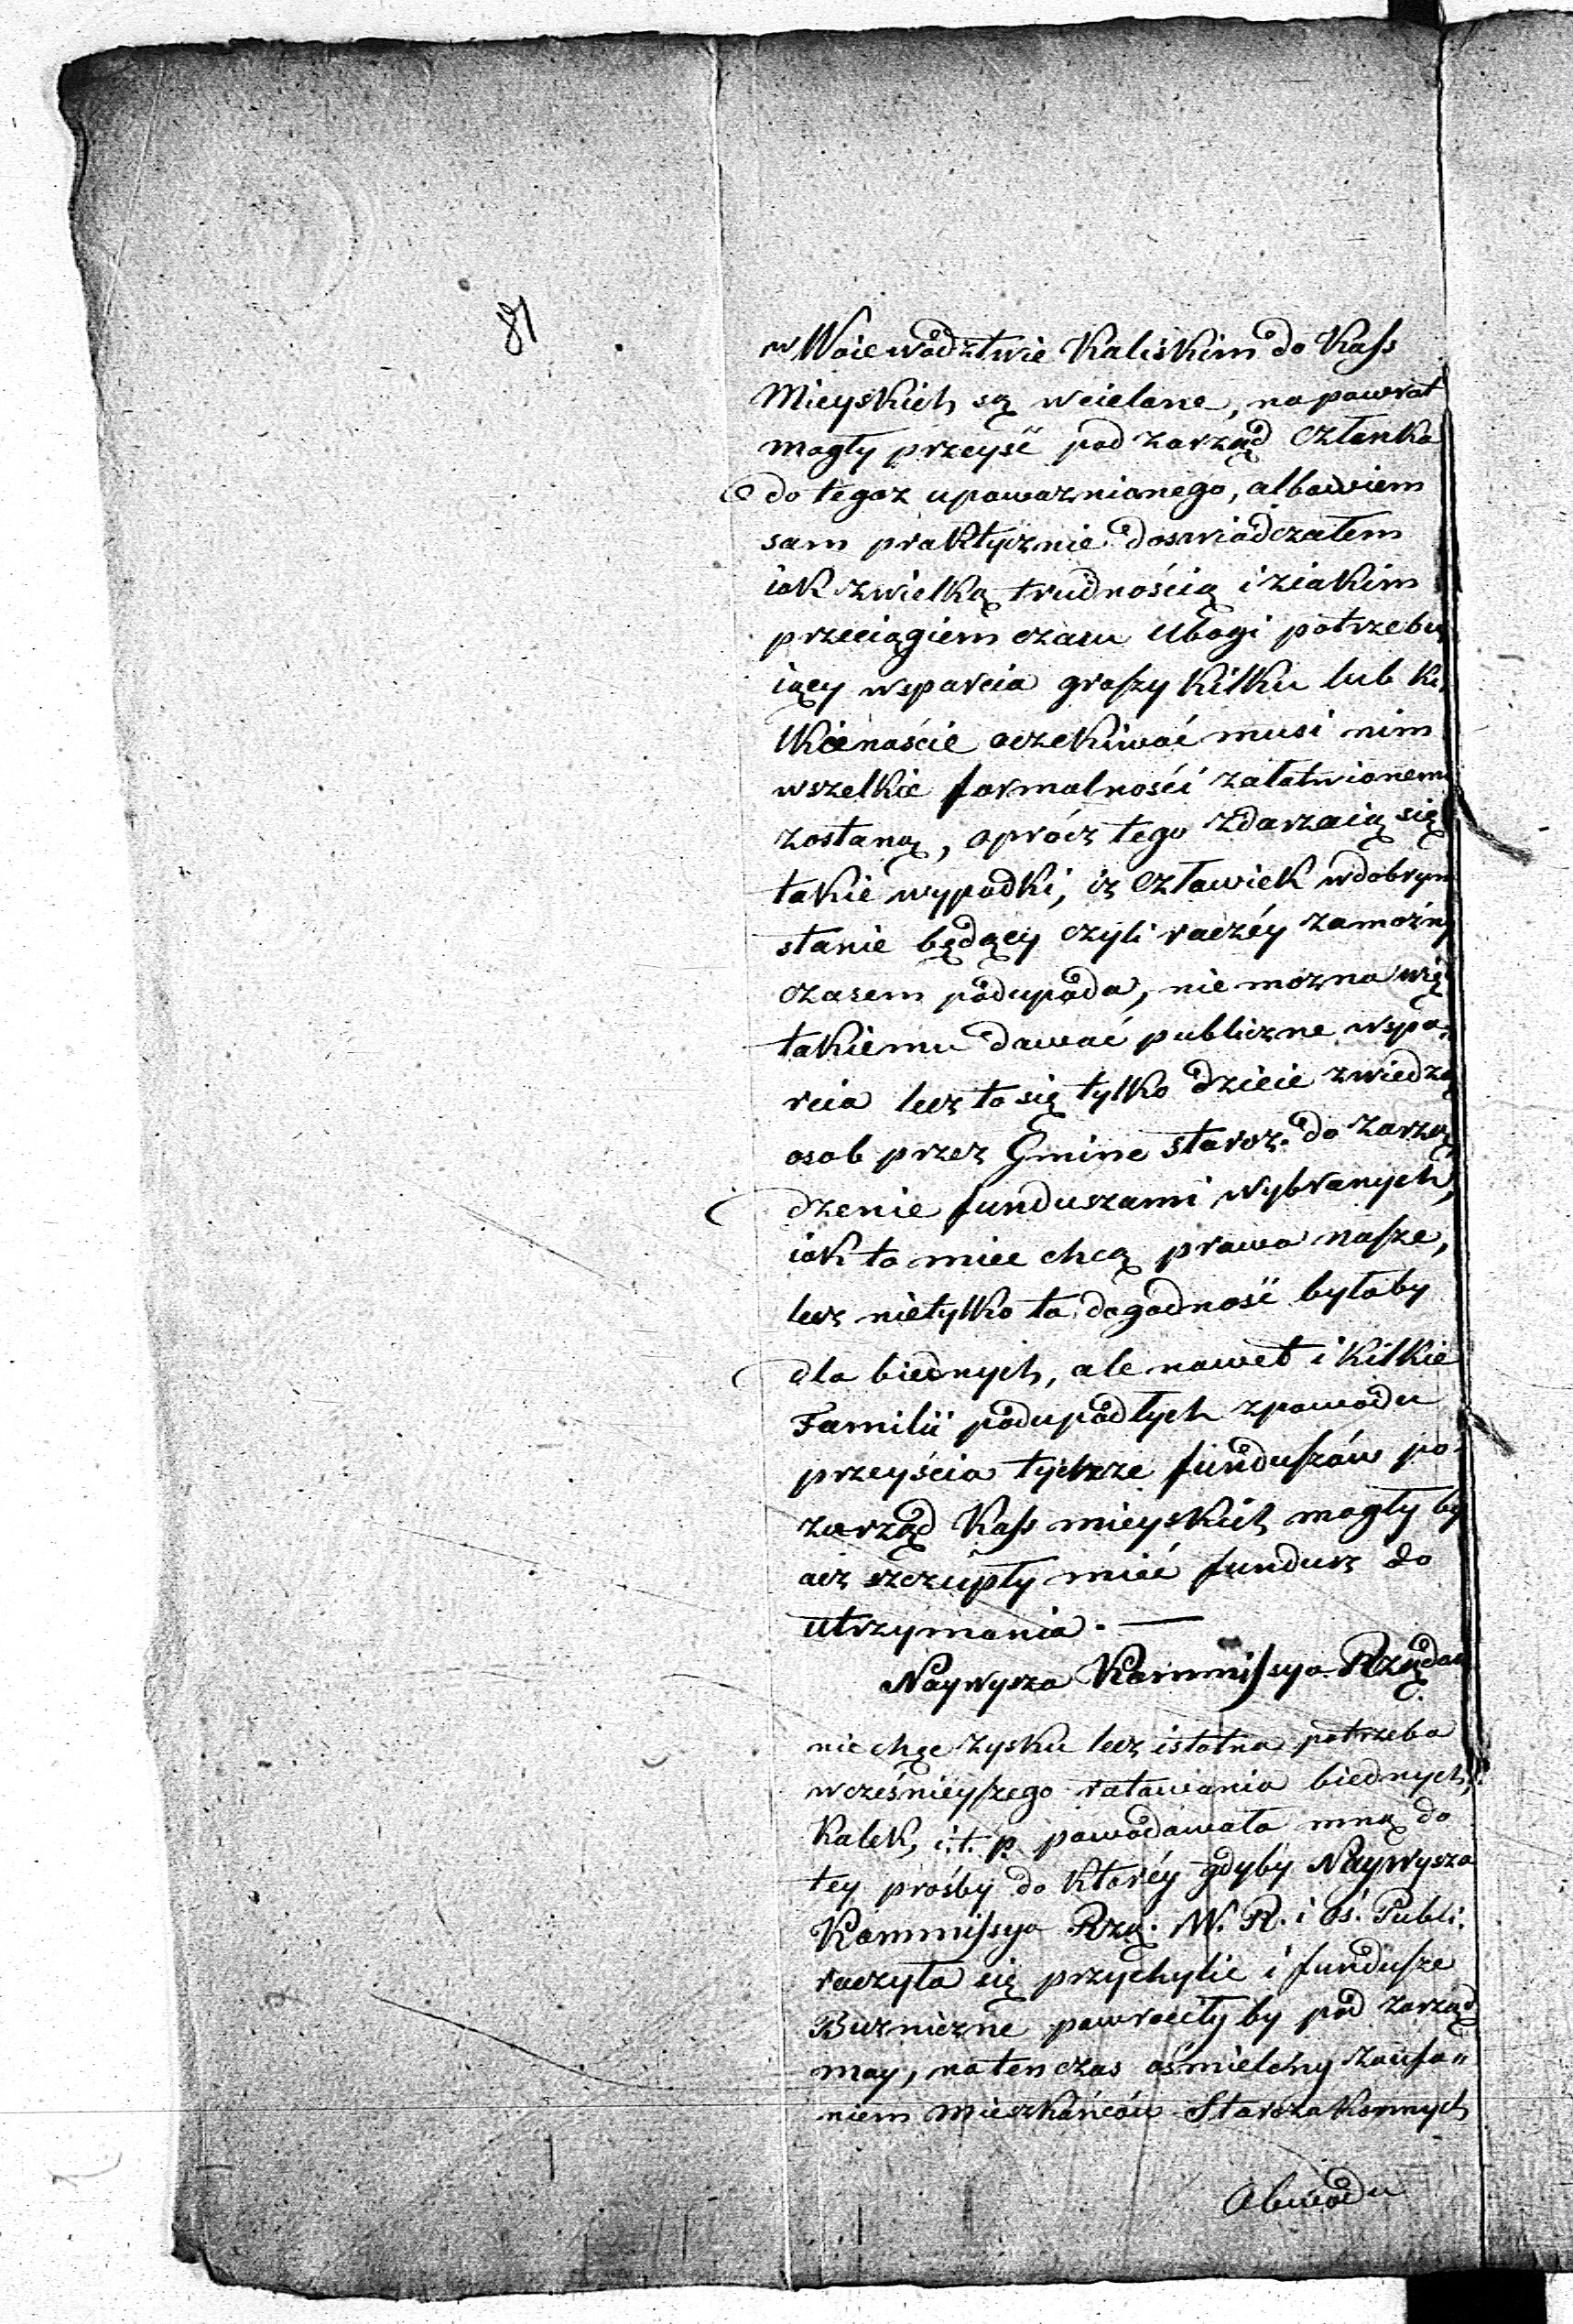 81
w Woiewództwie Kaliskim do Kass
Mieyskich są wcielane, napowrot
mogły przeyść pod zarząd Członka
do tegoz upowaznionego, albowiem
sam praktycznie doswiadczałem
iak zwielką trudnością i ziakim
przeciągiem czasu Ubogi potrzebu
iący wsparcia groszy kilku lub ki
lkienaście oczekiwać musi nim
wszelkie formalności załatwionemi
zostaną, oprócz tego zdarzaią się
takie wypadki, iz Człowiek wdobrym
stanie będący czyli raczéy zamożny
czasem podupada, nie mozna więc
takiemu dawać publiczne wspa-
rcia lecz to się tylko dzieie zwiedzą
osob przez Gmine staroz. do zarzą
dzenie funduszami wybranych,
iak to miec chcą prawa nasze,
lecz nietylko ta dogodność byłaby
dla biednych, ale nawet i kilkie
Familii podupadłych zpowodu
przeyścia tychze funduszów po-
zarząd Kass mieyskich mogły by
acz szczupły mieć fundusz do
utrzymania. —
Naywysza Kommissyo Rządow
nie chęc zysku lecz istotna potrzeba
wcześnieyszego ratowania biednych,
Kalek, i. t. p. powodowała mną do
tey prośby do któréy gdyby Naywysza
Kommissya Rzą: W. R. i Oś. Publi.
raczyła się przychylic i fundusze
Buzniczne powrociły by pod zarząd
moy, natenczas ośmielony zaufa„
niem Mieszkańców Starozakonnych
Obwodu